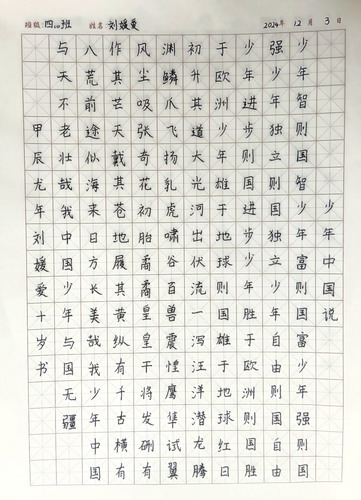 班级: 四(2)班 姓名 刘媛爱 2024年 12月 3日
少年中国说
少年智则国智少年富则国富少年强则国
强少年独立则国独立少年自由则国自由
少年进步则国进步少年胜于欧洲则国胜
于欧洲少年雄于地球则国雄于地球红日
初升其道大光河出伏流一泻汪洋潜龙腾
渊鳞爪飞扬乳虎啸谷百兽震惶鹰隼试翼
风尘吸张奇花初胎矞矞皇皇干将发硎有
作其芒天戴其苍地履其黄纵有千古横有
八荒前途似海来日方长美哉我少年中国
与天不老壮哉我中国少年与国无疆
甲辰龙年刘媛爱十岁书